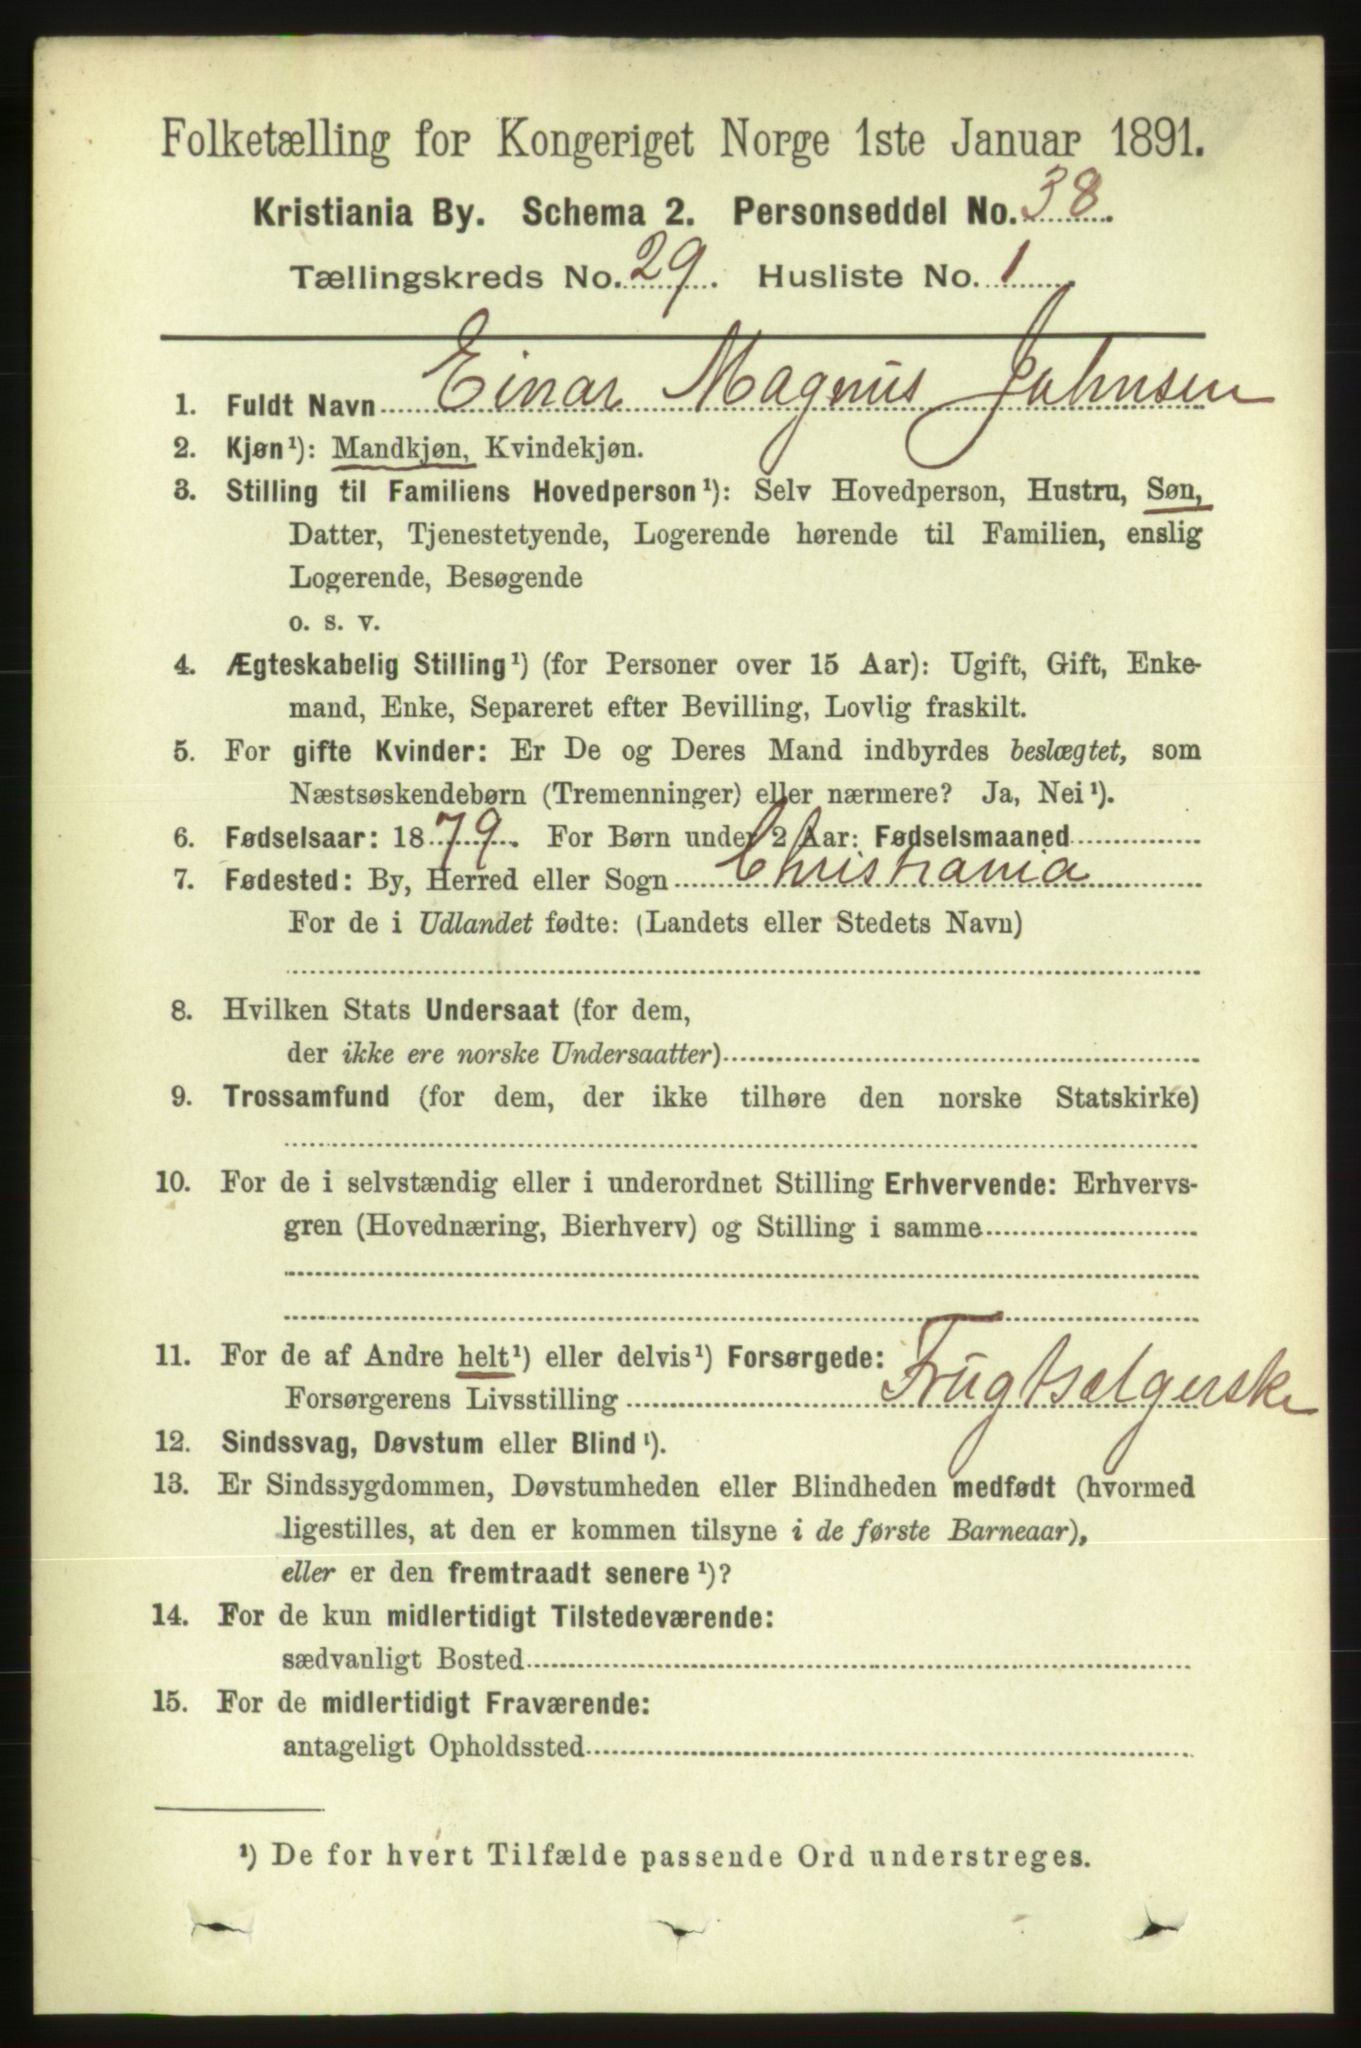 Folketælling for Kongeriget Norge 1ste Januar 1891.
Kristiania By. Schema 2. Personseddel No. 38.
Tællingskreds No. 29. Husliste No. 1.
1. Fuldt Navn Einar Magnus Johnsen
2. Kjøn¹): Mandkjøn, Kvindekjøn.
3. Stilling til Familiens Hovedperson¹): Selv Hovedperson, Hustru, Søn,
Datter, Tjenestetyende, Logerende hørende til Familien, enslig
Logerende, Besøgende
o. s. v.
4. Ægteskabelig Stilling¹) (for Personer over 15 Aar): Ugift, Gift, Enke-
mand, Enke, Separeret efter Bevilling, Lovlig fraskilt.
5. For gifte Kvinder: Er De og Deres Mand indbyrdes beslægtet, som
Næstsøskendebørn (Tremenninger) eller nærmere? Ja, Nei¹).
6. Fødselsaar: 1879. For Børn under 2 Aar: Fødselsmaaned
7. Fødested: By, Herred eller Sogn Christiania
For de i Udlandet fødte: (Landets eller Stedets Navn)
8. Hvilken Stats Undersaat (for dem,
der ikke ere norske Undersaatter)
9. Trossamfund (for dem, der ikke tilhøre den norske Statskirke)
10. For de i selvstændig eller i underordnet Stilling Erhvervende: Erhvervs-
gren (Hovednæring, Bierhverv) og Stilling i samme
11. For de af Andre helt¹) eller delvis¹) Forsørgede:
Forsørgerens Livsstilling Frugtsælgerske
12. Sindssvag, Døvstum eller Blind¹).
13. Er Sindssygdommen, Døvstumheden eller Blindheden medfødt (hvormed
ligestilles, at den er kommen tilsyne i de første Barneaar),
eller er den fremtraadt senere¹)?
14. For de kun midlertidigt Tilstedeværende:
sædvanligt Bosted
15. For de midlertidigt Fraværende:
antageligt Opholdssted
¹) De for hvert Tilfælde passende Ord understreges.